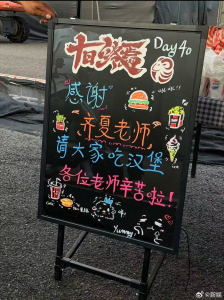 十日终焉
Day 40
感谢
齐夏老师
请大家吃汉堡
各位老师辛苦啦!
Yummy